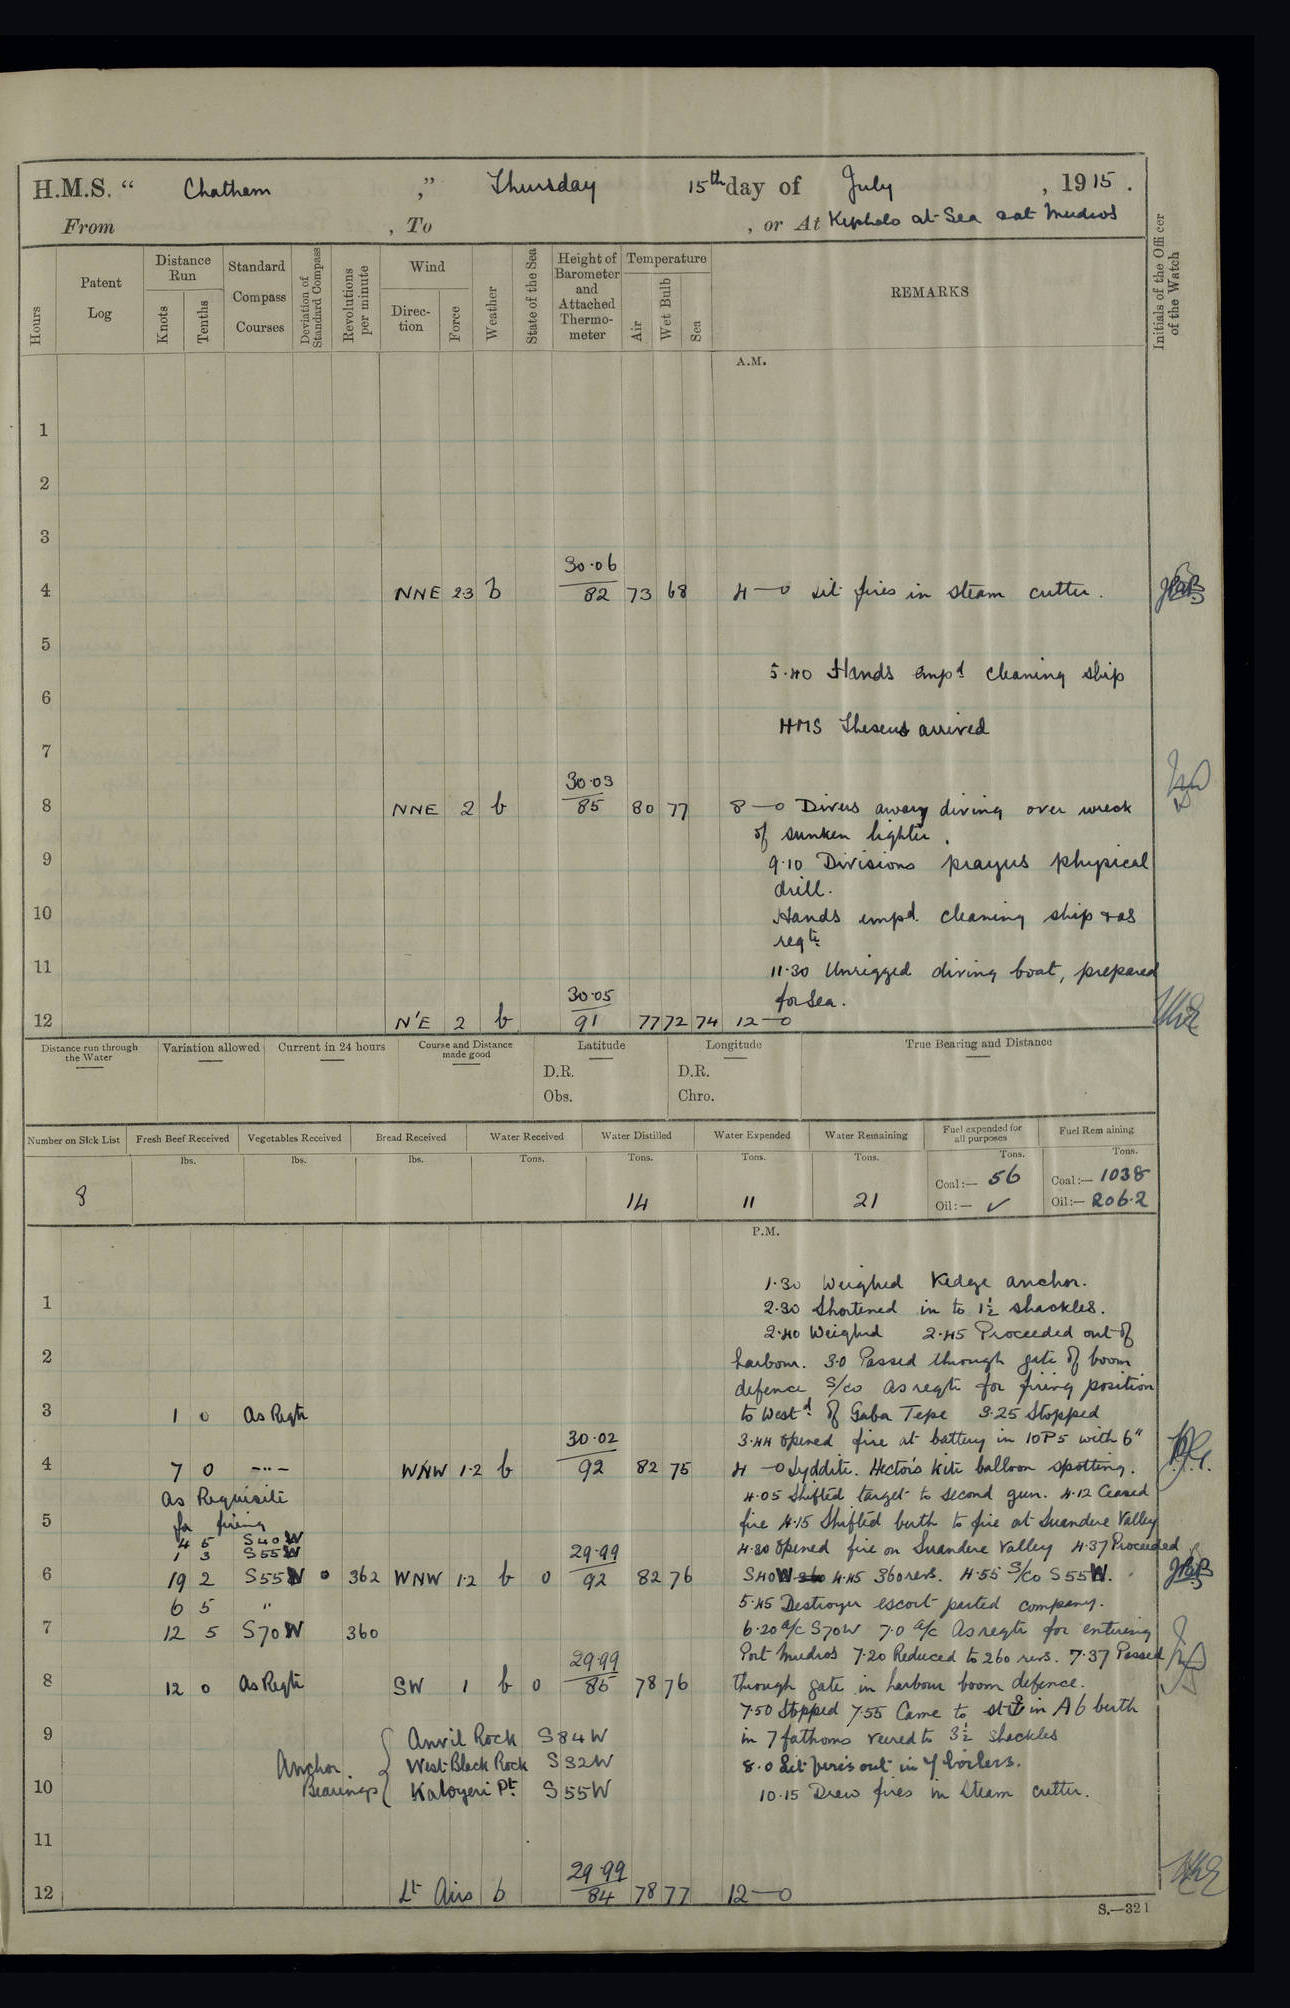 H.M.S. “ Chatham ,” Thursday 15th day of July , 1915 .
From , To , or At Kephalo at Sea & at Mudros
Hours
Patent Log
Distance Run
Knots
Tenths
Standard Compass Courses
Deviation of Standard Compass
Revolutions per minute
Wind
Direction
Force
Weather
State of the Sea
Height of Barometer and Attached Thermometer
Temperature
Air
Wet Bulb
Sea
REMARKS
Initials of the Officer of the Watch
A.M.
1
2
3
30·06
4 NNE 2·3 b 82 73 68 4—0 Lit fires in steam cutter.
5
5·40 Hands empd cleaning ship
6
HMS Theseus arrived
7
30·03
8 NNE 2 b 85 80 77 8—0 Divers away diving over wreck
of sunken lighter.
9 9·10 Divisions prayers physical
drill.
10 Hands empd. cleaning ship & as
reqte.
11 11·30 Unrigged diving boat, prepared
30·05 for sea.
12 N'E 2 b 91 77 72 74 12—0
Distance run through the Water
Variation allowed
Current in 24 hours
Course and Distance made good
Latitude
D.R.
Obs.
Longitude
D.R.
Chro.
True Bearing and Distance
Number on Sick List
Fresh Beef Received
Vegetables Received
Bread Received
Water Received
Water Distilled
Water Expended
Water Remaining
Fuel expended for all purposes
Fuel Remaining
lbs. lbs. lbs. Tons. Tons. Tons. Tons. Tons. Tons.
8 14 11 21 Coal:— 56 Coal:— 1038
Oil:— ✓ Oil:— 206·2
P.M.
1·30 Weighed Kedge anchor.
1 2·30 Shortened in to 1½ shackles.
2·40 Weighed 2·45 Proceeded out of
2 harbour. 3·0 Passed through gate of boom
defence S/co As reqte for firing position
3 1 0 As Reqte to Westd. of Gaba Tepe 3·25 Stopped
30·02 3·44 opened fire at battery in 10P5 with 6"
4 7 0 -"- WNW 1·2 b 92 82 75 4—0 Lyddite. Hector's kite balloon spotting.
As Requisite 4·05 Shifted target to second gun. 4·12 Ceased
5 for firing fire 4·15 Shifted berth to fire at Suandere Valley
4 5 S40W
1 3 S55W 29·99 4·30 opened fire on Suandere Valley 4·37 Proceeded
6 19 2 S55W 0 362 WNW 1·2 b 0 92 82 76 S40W 360 4·45 360 revs. 4·55 S/co S55W.
6 5 " 5·45 Destroyer escort parted company.
7 12 5 S70W 360 6·20 a/c S70W 7·0 a/c As reqte for entering
29·99 Port Mudros 7·20 Reduced to 260 revs. 7·37 Passed
8 12 0 As Reqte SW 1 b 0 85 78 76 through gate in harbour boom defence.
7·50 Stopped 7·55 Came to in A6 berth
9 Anvil Rock S84W in 7 fathoms veered to 3½ shackles
Anchor West Black Rock S32W 8·0 Let fires out in 4 boilers.
10 Bearings Kaloyeri Pt. S55W 10·15 Drew fires in steam cutter.
11
29·99
12 Lt Airs b 84 78 77 12—0
S.—321